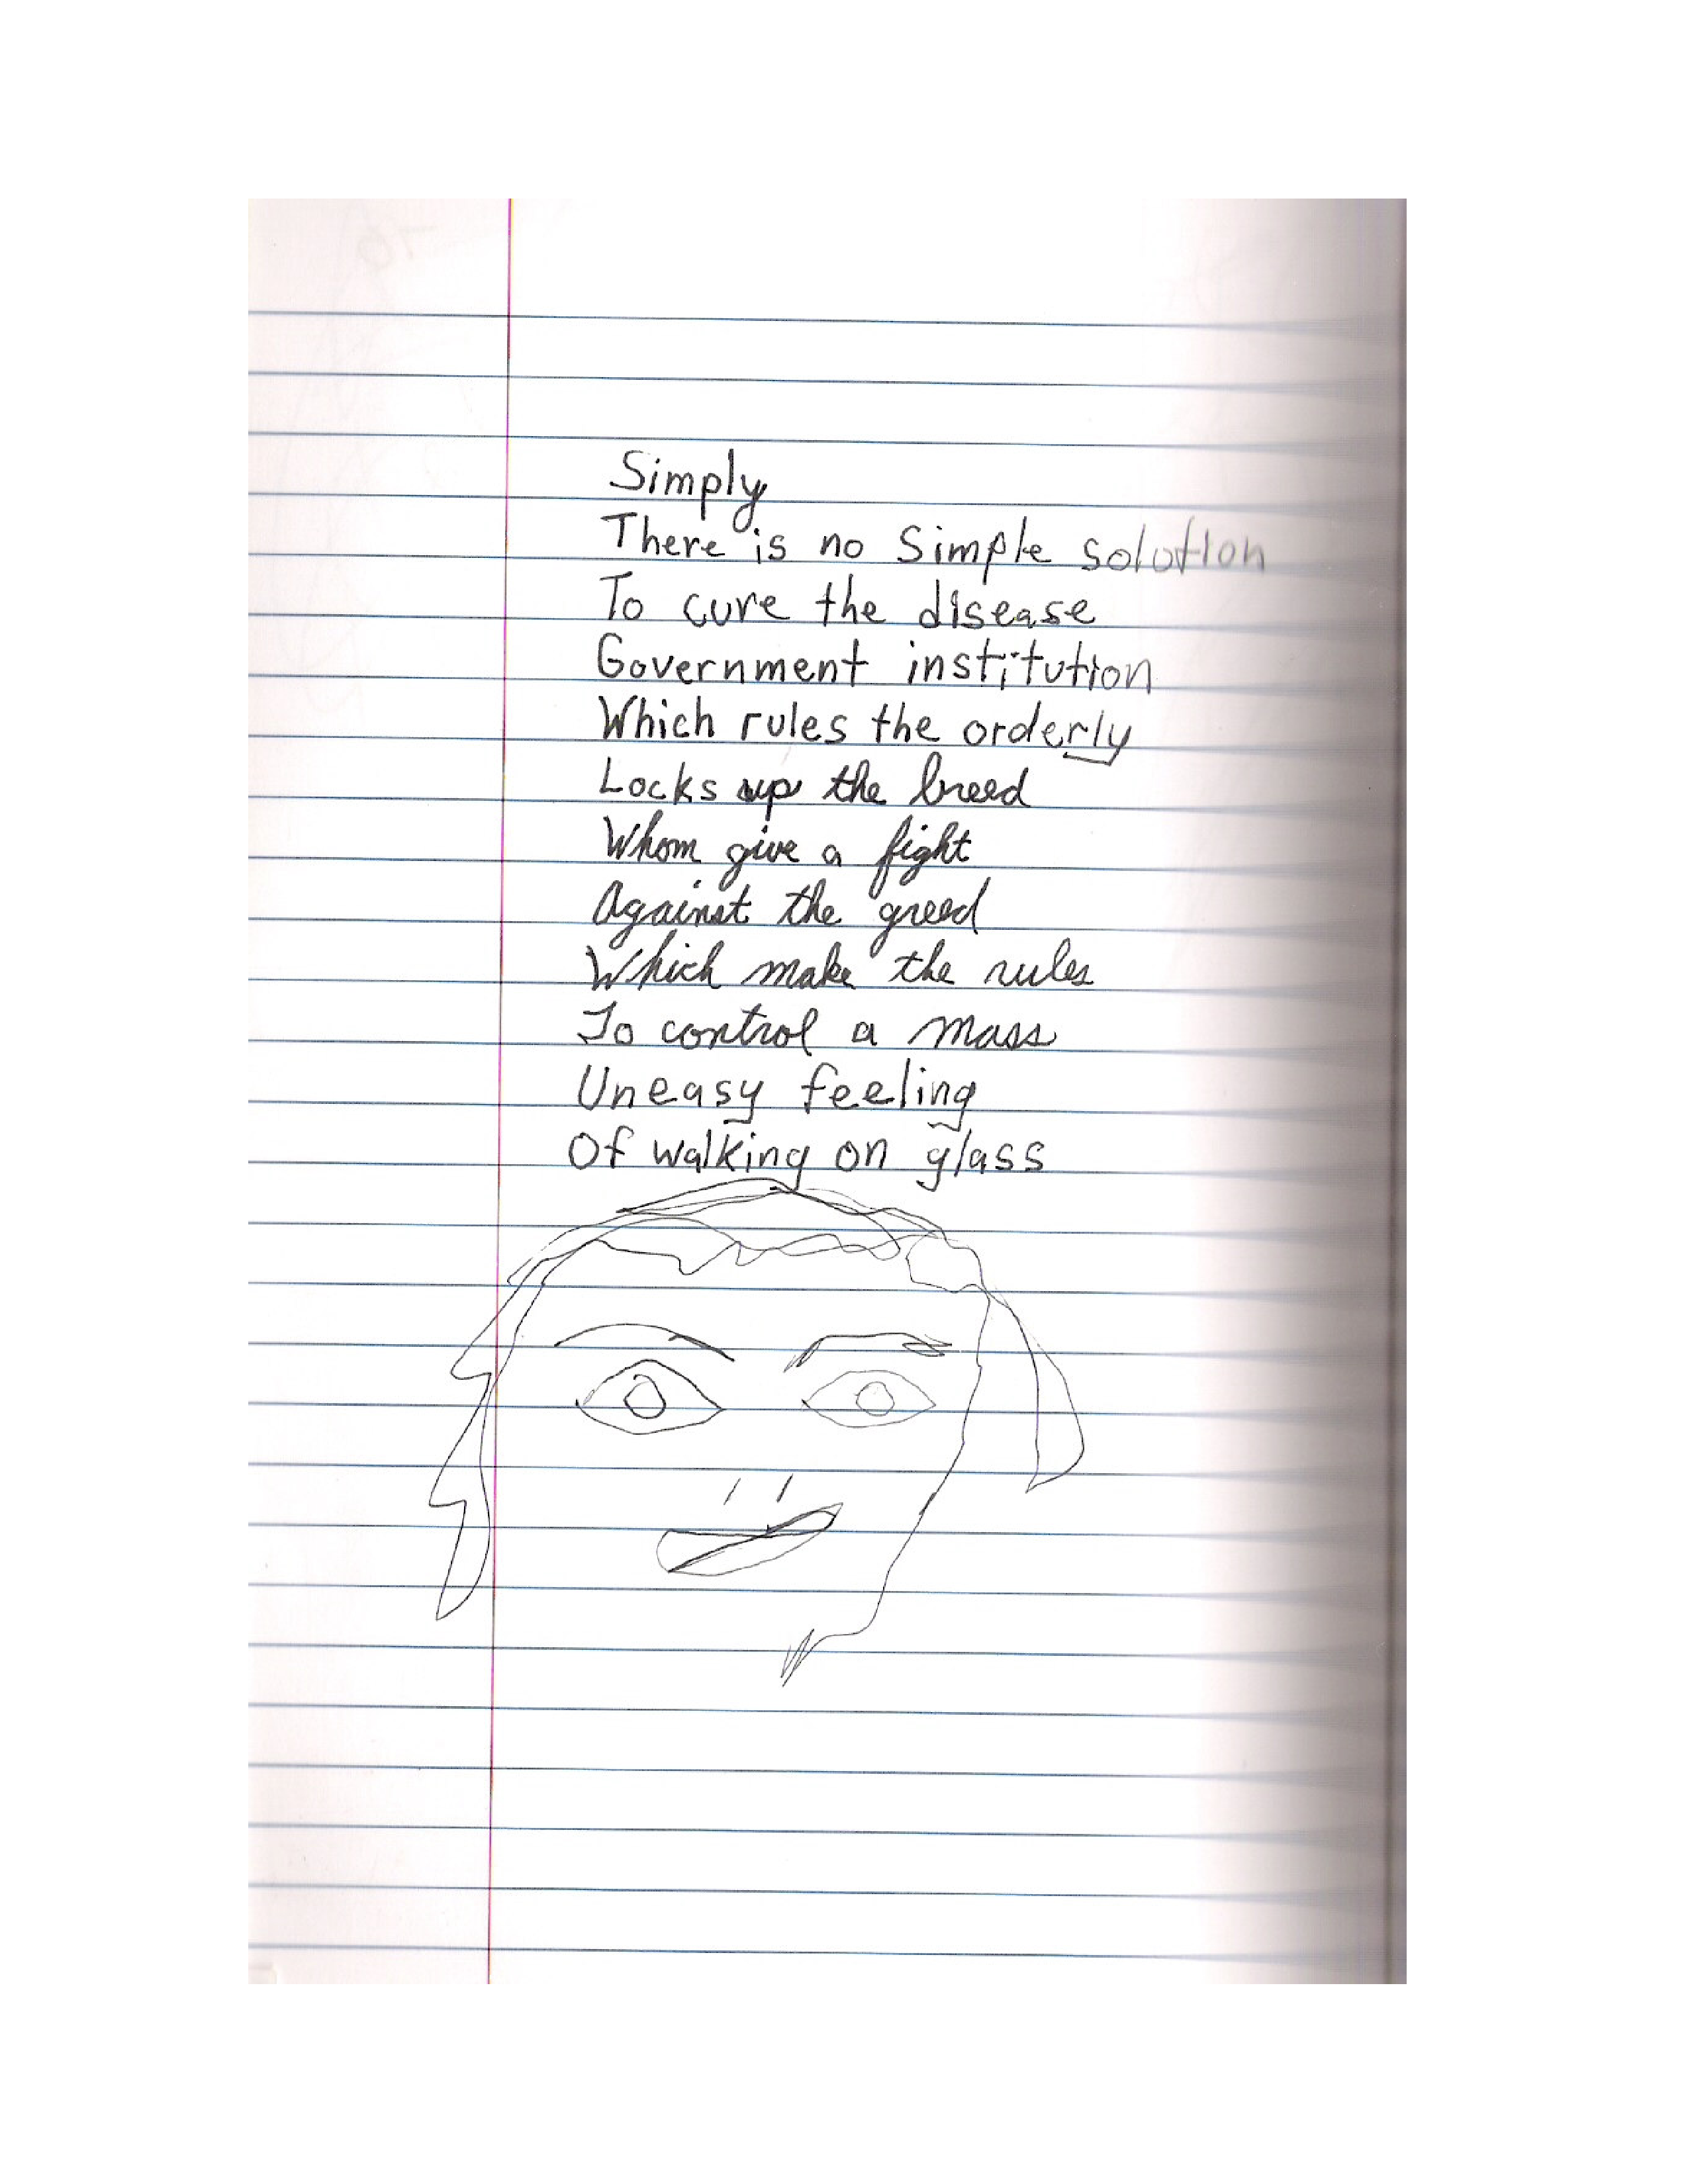 Simply
There is no Simple solution
To cure the disease
Government institution
Which rules the orderly
Locks up the breed
Whom give a fight
Against the greed
Which make the rules
To control a mass
Uneasy feeling
Of walking on glass